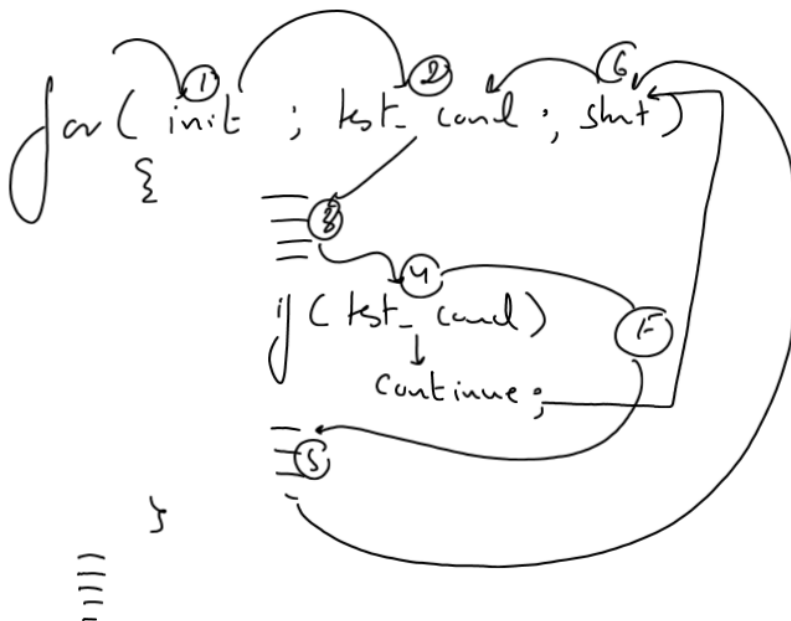 1 2 6
for ( init ; test_cond ; stmt )
{
3
4
if ( test_cond )
F
continue ;
5
}